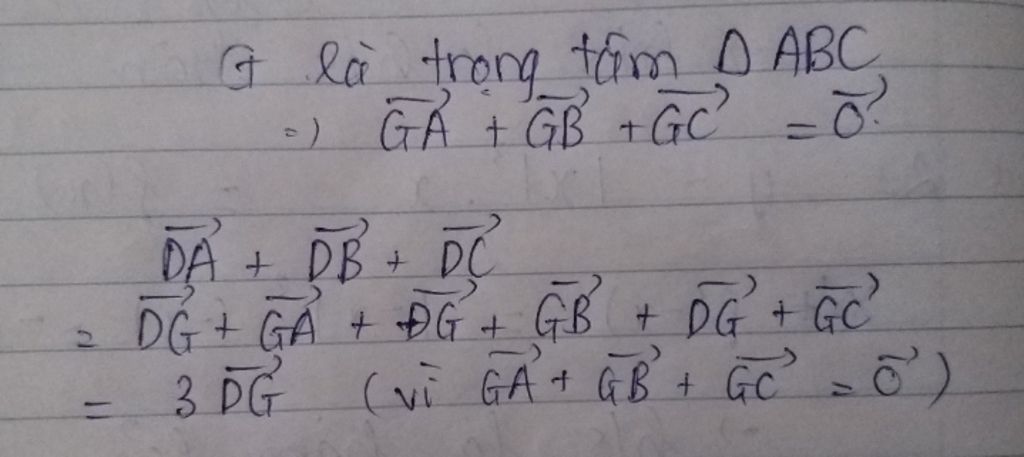 G là trọng tâm Δ ABC
=) \overrightarrow{GA} + \overrightarrow{GB} + \overrightarrow{GC} = \overrightarrow{0}.
\overrightarrow{DA} + \overrightarrow{DB} + \overrightarrow{DC}
= \overrightarrow{DG} + \overrightarrow{GA} + \overrightarrow{DG} + \overrightarrow{GB} + \overrightarrow{DG} + \overrightarrow{GC}
= 3 \overrightarrow{DG} (vì \overrightarrow{GA} + \overrightarrow{GB} + \overrightarrow{GC} = \overrightarrow{0})